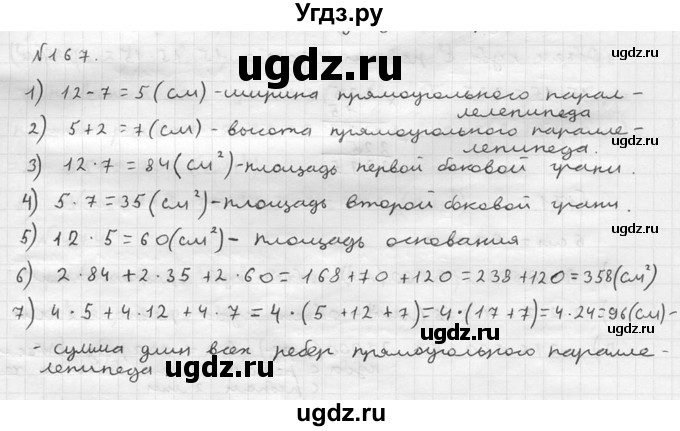 Угдз.ру
№167.
ugdz.ru
ugdz.ru
1) 12-7=5(см)-ширина прямоугольного парал-
лелепипеда
ugdz.ru
2) 5+2=7(см)-высота прямоугольного паралле-
лепипеда.
ugdz.ru
3) 12·7=84(см²)-площадь первой боковой грани.
4) 5·7=35(см²)-площадь второй боковой грани.
ugdz.ru
5) 12·5=60(см²)- площадь основания
6) 2·84+2·35+2·60=168+70+120=238+120=358(см²)
7) 4·5+4·12+4·7=4·(5+12+7)=4·(17+7)=4·24=96(см)-
ugdz.ru
- сумма длин всех ребер прямоугольного паралле-
лепипеда
ugdz.ru
ugdz.ru
ugdz.ru